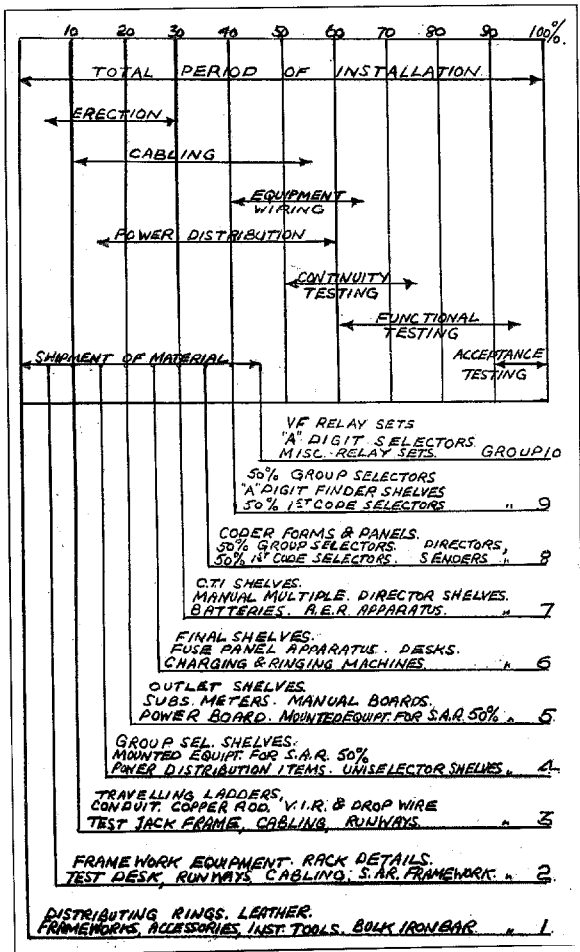 10 20 30 40 50 60 70 80 90 100%.
TOTAL PERIOD OF INSTALLATION.
ERECTION
CABLING
EQUIPMENT
WIRING
POWER DISTRIBUTION
CONTINUITY
TESTING
FUNCTIONAL
TESTING
SHIPMENT OF MATERIAL
ACCEPTANCE
TESTING
VF RELAY SETS
"A" DIGIT SELECTORS
MISC. RELAY SETS. GROUP 10
50% GROUP SELECTORS
"A" DIGIT FINDER SHELVES
50% 1ST CODE SELECTORS " 9
CODER FORMS & PANELS.
50% GROUP SELECTORS. DIRECTORS,
50% 1ST CODE SELECTORS. SENDERS " 8
C.T.I SHELVES.
MANUAL MULTIPLE. DIRECTOR SHELVES.
BATTERIES. A.E.R. APPARATUS. " 7
FINAL SHELVES.
FUSE PANEL APPARATUS. DESKS.
CHARGING & RINGING MACHINES. " 6
OUTLET SHELVES.
SUBS. METERS. MANUAL BOARDS.
POWER BOARD. MOUNTED EQUIPT. FOR S.A.R. 50% " 5
GROUP SEL. SHELVES.
MOUNTED EQUIPT. FOR S.A.R. 50%
POWER DISTRIBUTION ITEMS. UNISELECTOR SHELVES. " 4
TRAVELLING LADDERS,
CONDUIT. COPPER ROD. V.I.R. & DROP WIRE
TEST JACK FRAME, CABLING, RUNWAYS. " 3
FRAMEWORK EQUIPMENT. RACK DETAILS.
TEST DESK, RUNWAYS, CABLING, S.A.R. FRAMEWORK. " 2
DISTRIBUTING RINGS. LEATHER.
FRAMEWORKS, ACCESSORIES, INST. TOOLS. BULK IRON BAR " 1.